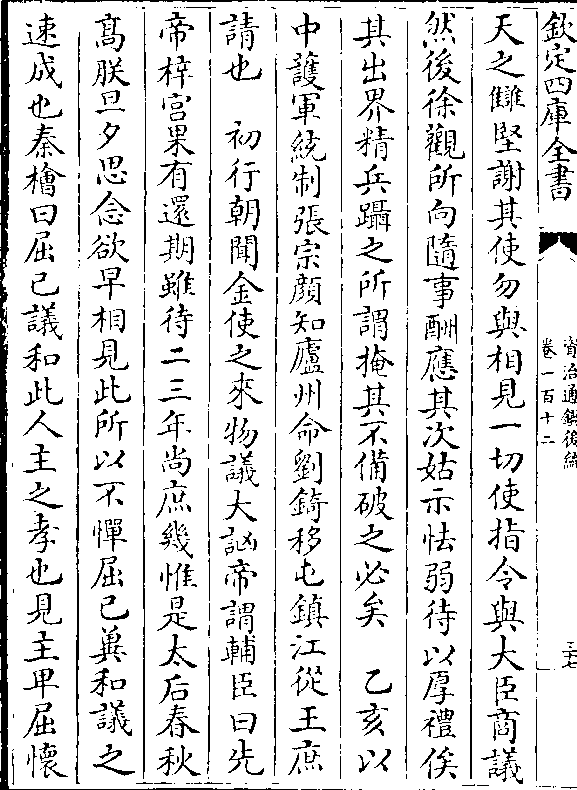 欽定四庫全書
資治通鑑後編
卷一百十二
天之讎堅謝其使勿與相見一切使指令與大臣商議
然後徐觀所向隨事酬應其次姑示怯弱待以厚禮俟
其出界精兵躡之所謂掩其不備破之必矣　乙亥以
中護軍統制張宗顔知廬州命劉錡移屯鎮江從王庶
請也　初行朝聞金使之來物議大訩帝謂輔臣曰先
帝梓宫果有還期雖待二三年尚庶幾惟是太后春秋
髙朕旦夕思念欲早相見此所以不憚屈己冀和議之
速成也秦檜曰屈己議和此人主之孝也見主卑屈懷